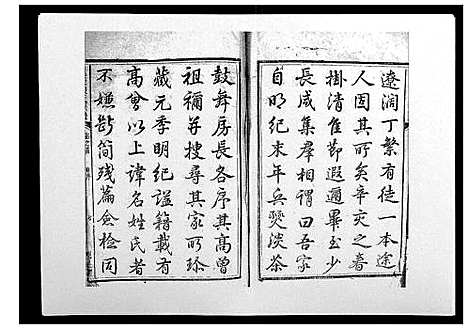 遼濶丁繁有徒一本途
人固其所矣辛亥之春
掛清佳節遐邇畢至少
長咸集羣相謂曰吾家
自明紀末年兵燹淡荼
鼓舞房長各序其高曾
祖禰并搜尋其家所珍
藏元季明紀謚籍載有
高曾以上諱名姓氏者
不嫌斷簡殘篇僉檢同